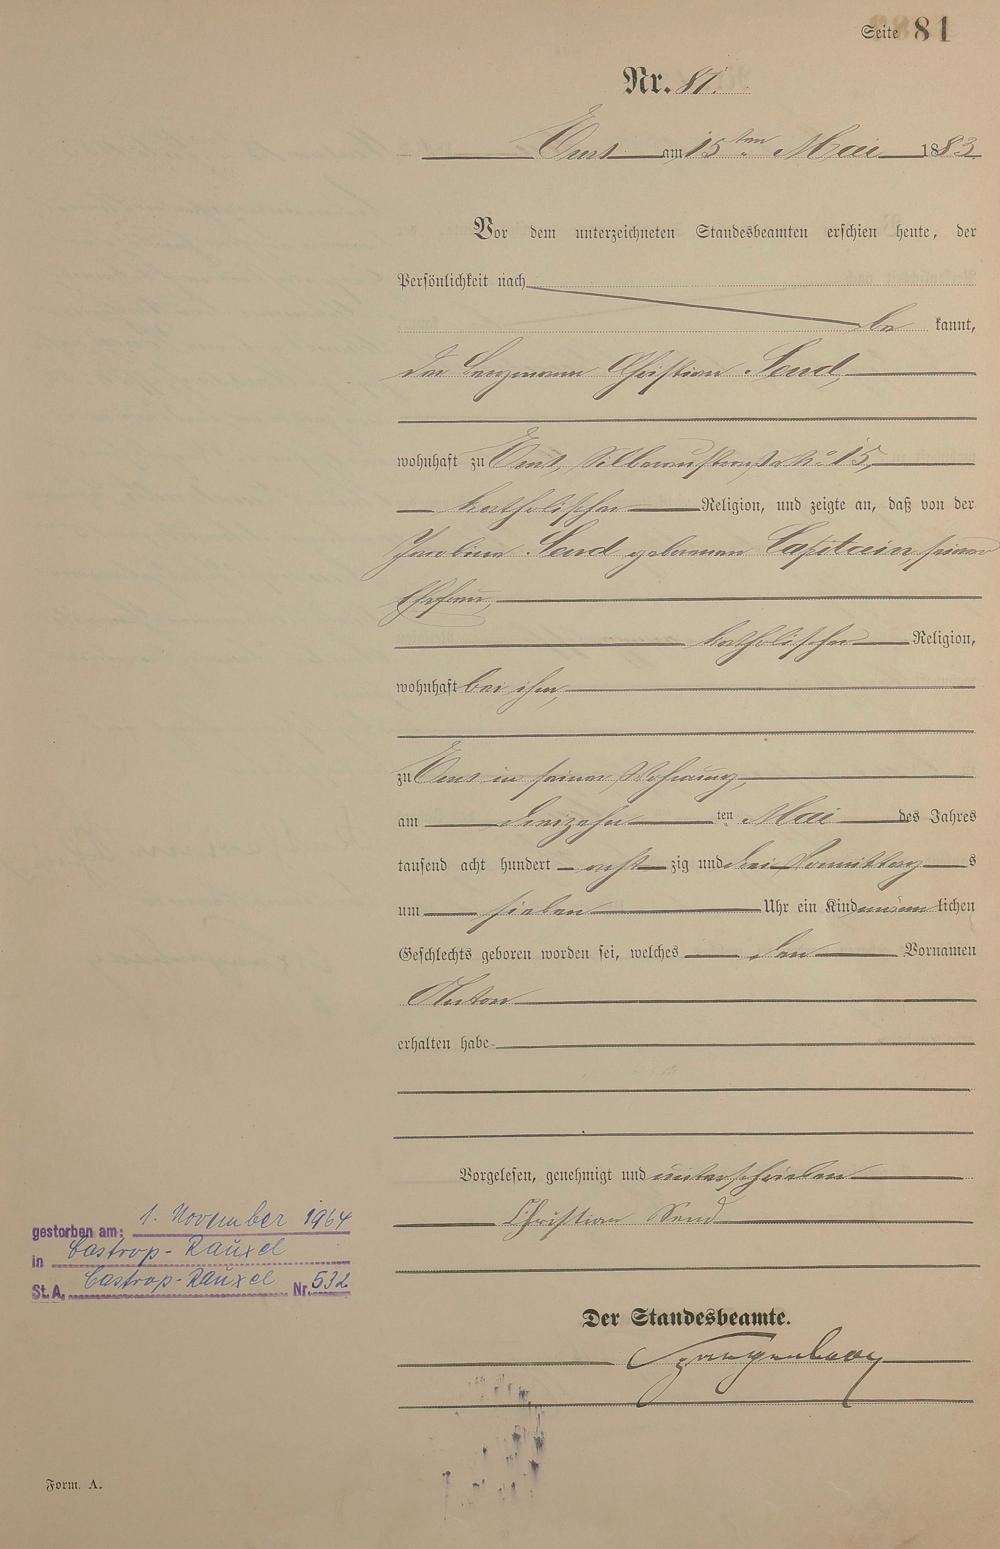 Seite 81
Nr. 81.
Ems am 15ten Mai 1883
Vor dem unterzeichneten Standesbeamten erschien heute, der
Persönlichkeit nach
be kannt,
der Bergmann Christian Send,
wohnhaft zu Ems, Silberaustraße No 15,
katholischer Religion, und zeigte an, daß von der
Jacobine Send geborenen Capitain, seiner
Ehefrau,
katholischer Religion,
wohnhaft bei ihm,
zu Ems in seiner Wohnung,
am dreizehn ten Mai des Jahres
tausend acht hundert acht zig und drei Vormittag s
um sieben Uhr ein Kind männ lichen
Geschlechts geboren worden sei, welches den Vornamen
Anton
erhalten habe
Vorgelesen, genehmigt und unterschrieben
Christian Send
gestorben am: 1. November 1964
in Castrop-Rauxel
St. A. Castrop-Rauxel Nr. 532
Der Standesbeamte.
Form. A.